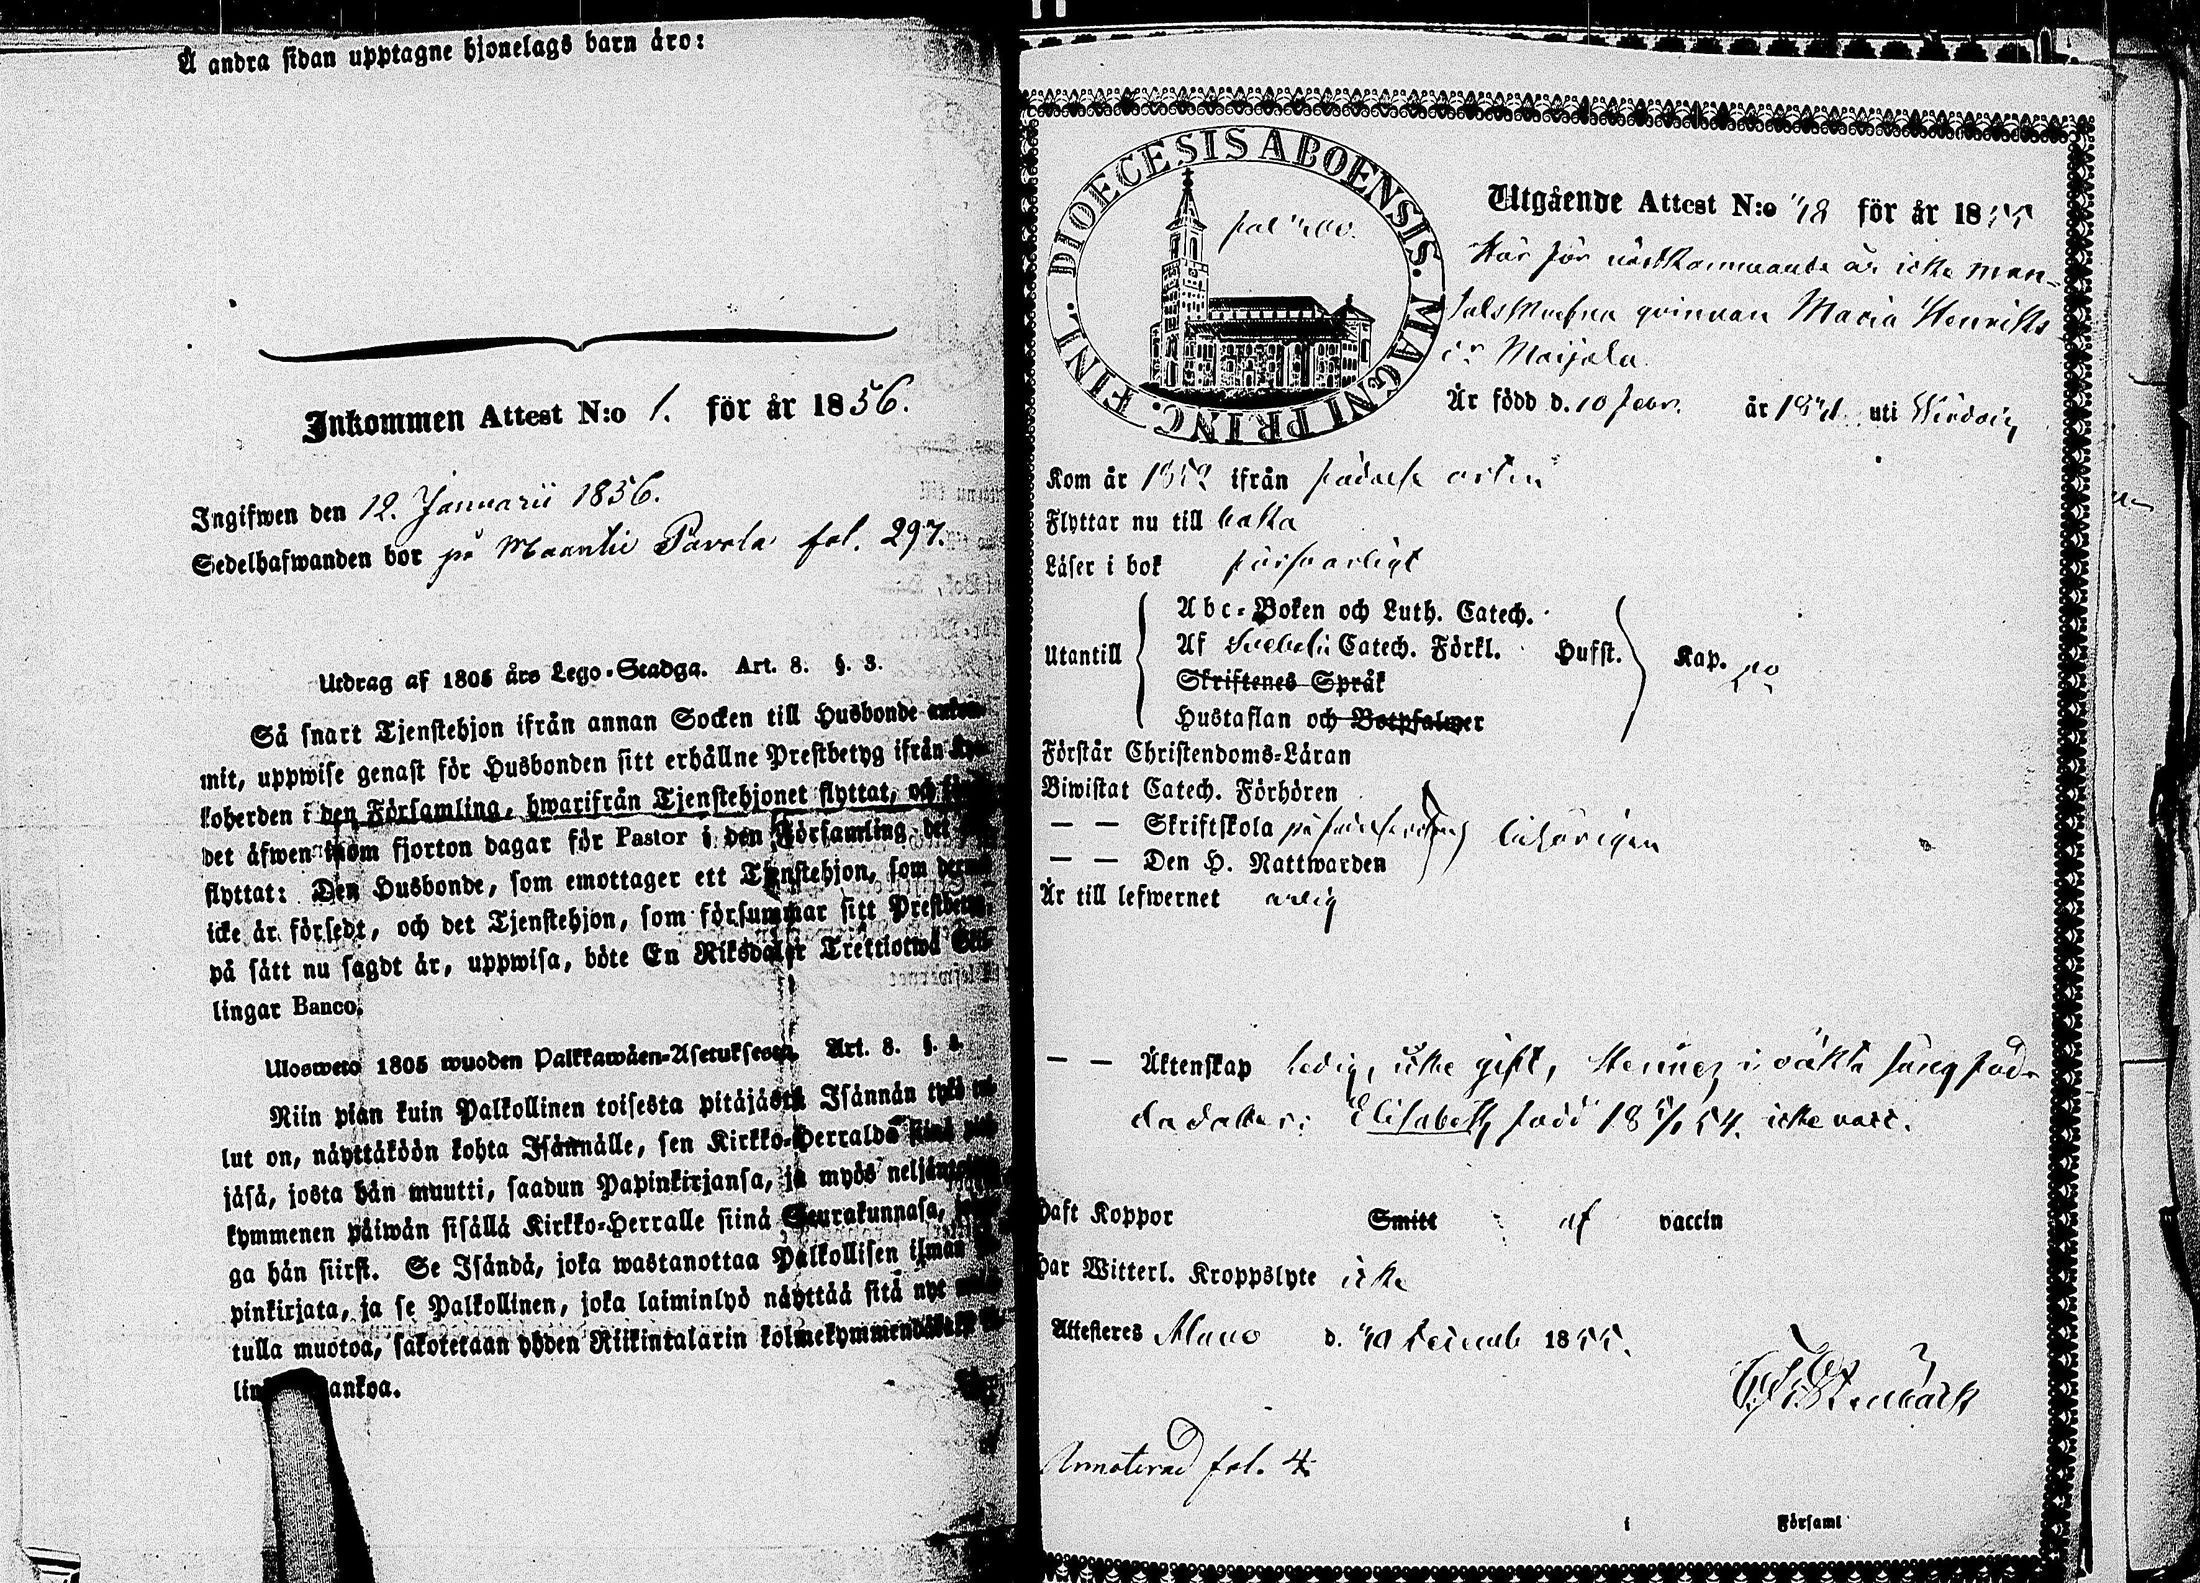 Å andra sidan upptagne hjonelags barn äro:
Inkommen Attest N:o 1. för år 1856.
Ingifwen den 12. Januarii 1856.
Sedelhafwanden bor på Maantie Pavola fol. 297.
Utdrag af 1805 års Lego-Stadga. Art. 8. §. 3.
Så snart Tjenstehjon ifrån annan Socken till Husbonde ankom-
mit, uppwise genast för Husbonden sitt erhållne Prestbetyg ifrån
koherden i den Församling, hwarifrån Tjenstehjonet flyttat, och
det äfwen inom fjorton dagar för Pastor i den Församling, det
flyttat: Den Husbonde, som emottager ett Tjenstehjon, som
icke är försedt, och det Tjenstehjon, som försummar sitt Prestbetyg,
på sätt nu sagdt är, uppwisa, böte En Riksdaler Trettiotwå Skil-
lingar Banco.
Ulosweto 1805 wuoden Palkkawäen-Asetuksesta. Art. 8. §. 3.
Niin pian kuin Palkollinen toisesta pitäjästä Isännän tykö
lut on, näyttäköön kohta Isännälle, sen Kirkko-Herralda siinä
jäsä, josta hän muutti, saadun Papinkirjansa, ja myös neljän
kymmenen päiwän sisällä Kirkko-Herralle siinä Seurakunnasa,
ga hän siirsi. Se Isändä, joka wastanottaa Palkollisen ilman
pinkirjata, ja se Palkollinen, joka laiminlyö näyttää sitä nyt
tulla muotoa, sakotetaan yhden Riikintalarin kolmekymmendä
lin ankoa.
DIOECESIS ABOENSIS. MAGNI PRINC. FINL.
fol
Utgående Attest N:o 48 för år 1855
Här för nästkommande år icke man-
talsskrefna qvinnan Maria Henriks
dr Maijala.
Är född d. 10 Febr. år uti Wirdois
Kom år 1852 ifrån födelse orten
Flyttar nu till
Läser i bok försvarligt
Utantill
Abc-Boken och Luth. Catech.
Af Svebelii Catech. Förkl. Husst. Kap.
Skriftenes Språk
Hustaflan och Botpsalmer
Förstår Christendoms-Läran
Biwistat Catech. Förhören
— — Skriftskola på födelseorten behörigen
— — Den H. Nattwarden
Är till lefwernet ärlig
— — Äktenskap ledig, icke gift, Hennes oäkta säng föd-
da dotter: Elisabeth, född 18 54. icke vacc.
Haft Koppor Smitt af vaccin
Har Witterl. Kroppslyte icke
Attesteres Alavo d. 30 Decemb 1855.
Annoterad fol. 4.
i Församl